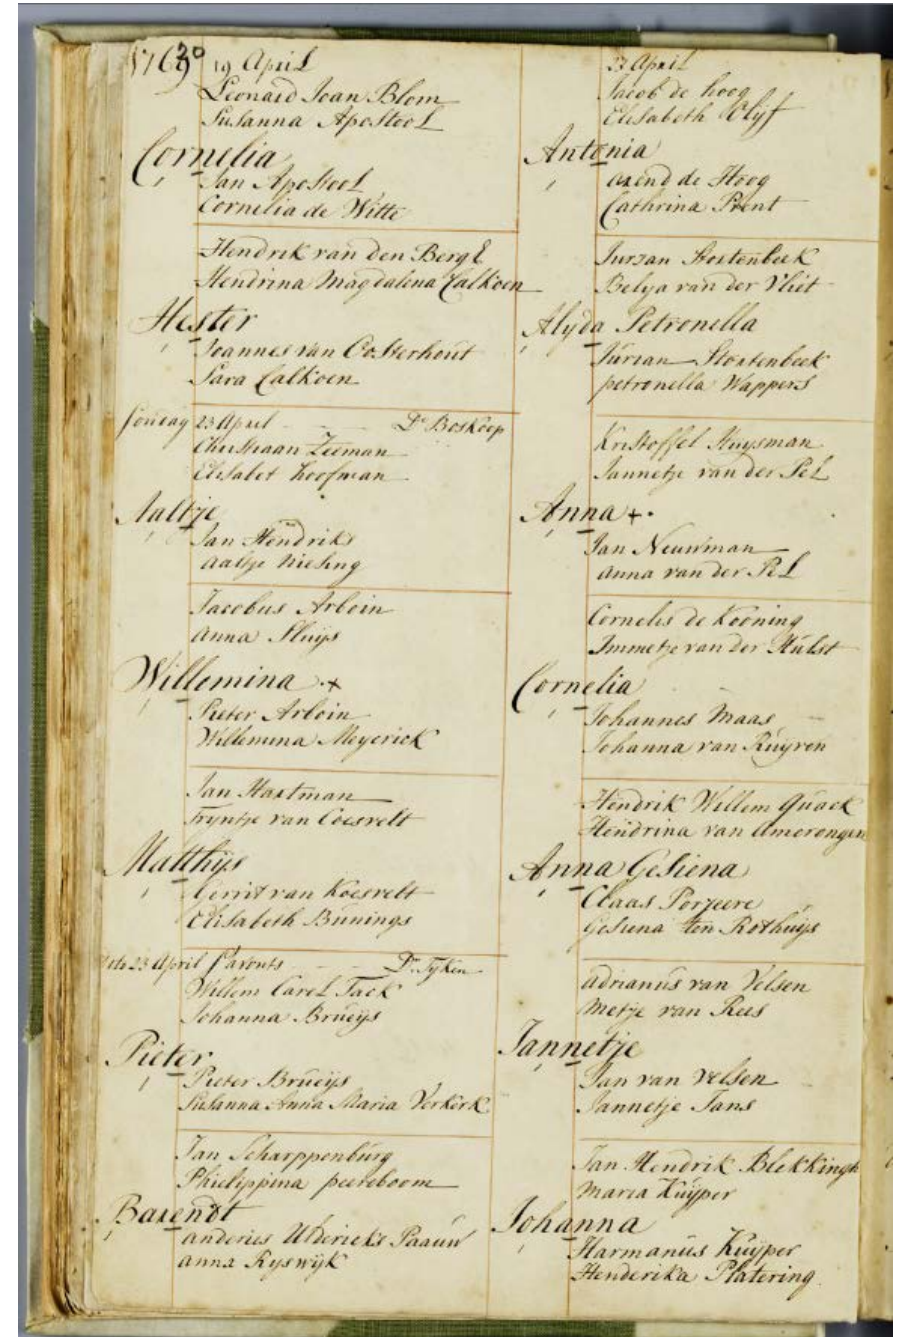 19 April
Leonard Joan Blom
Susanna Apostool
Cornelia
Jan Apostool
Cornelia de Witte
Hendrik van den Bergh
Hendrina Magdalena Calkoen
Hester
Joannes van Oosterhout
Sara Calkoen
23 April Ds. Boskoop
Christiaan Zeeman
Elisabet Hoofman
Aaltje
Jan Hendriks
Aaltje Niesing
Jacobus Arboin
Anna Sluijs
Willemina +
Pieter Arboin
Willemina Meyerick
Jan Hartman
Tryntje van Coesvelt
Matthijs
Gerrit van Koesvelt
Elisabeth Bunings
23 April s'avonts Ds. Tyken
Willem Carel Tack
Johanna Brueijs
Pieter
Pieter Brueijs
Susanna Anna Maria Verkerk
Jan Scharppenburg
Philippina peereboom
Barendt
anderies Paauw
anna Ryswijk
23 April
Jacob de hoog
Elisabeth Olijf
Antonia
arend de Hoog
Cathrina Prent
Jurian Stortenbeek
Belya van der Vliet
Alyda Petronella
Jurian Stortenbeek
petronella Wappers
Kristoffel Huysman
Jannetje van der Pel
Anna +.
Jan Neuwman
anna van der Pel
Cornelis de Kooning
Immetje van der Hulst
Cornelia
Johannes Maas
Johanna van Ruyven
Hendrik Willem Quack
Hendrina van Amerongen
Anna Gesiena
Claas Porjeere
Gesiena ten Rothuijs
adrianus van Velsen
Metje van Rees
Jannetje
Jan van Velsen
Jannetje Tans
Jan Hendrik Blekkingh
Maria Kuyper
Johanna
Harmanus Kuyper
Henderika Platering